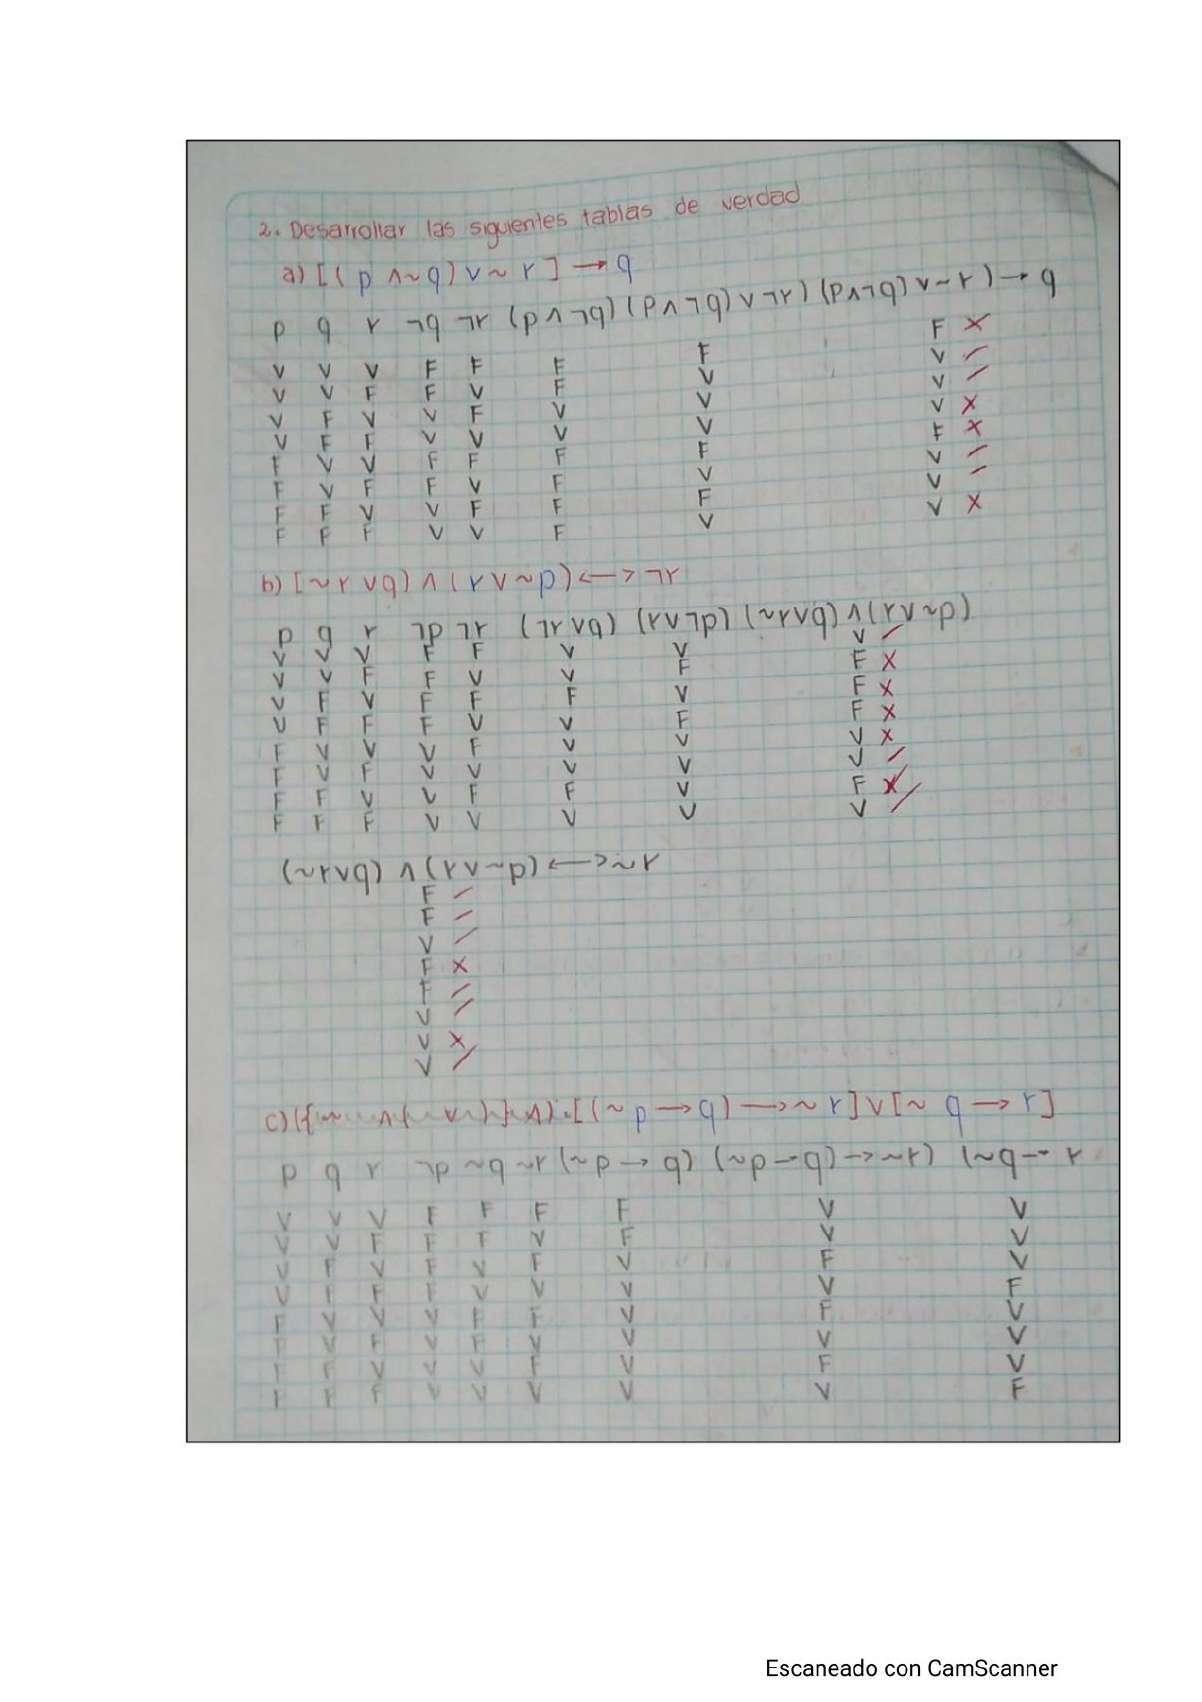 2. Desarrollar las siguientes tablas de verdad
a) [( p ∧ ~ q) ∨ ~ r ] → q
p q r ¬q ¬r (p ∧ ¬q) (p ∧ ¬q) ∨ ¬r) (p ∧ ¬q) ∨ ~ r) → q
V V V F F F F F ×
V V F F V F V V /
V F V V F V V V /
V F F V V V V V ×
F V V F F F F F ×
F V F F V F V V /
F F V V F F F V /
F F F V V F V V ×
b) [~ r ∨ q) ∧ ( r ∨ ~ p) <—> ¬r
p q r ¬p ¬r (¬r ∨ q) (r ∨ ¬p) (~r ∨ q) ∧ (r ∨ ~p)
V V V F F V V V /
V V F F V V F F ×
V F V F F F V F ×
V F F F V V F F ×
F V V V F V V V ×
F V F V V V V V /
F F V V F F V F ×
F F F V V V V V /
(~r ∨ q) ∧ (r ∨ ~p) <—> ~r
F /
F /
V /
F ×
F /
V /
V ×
V /
c) [(~ p → q) → ~ r ] ∨ [~ q → r ]
p q r ~p ~q ~r (~p → q) (~p → q) → ~r) (~q → r
V V V F F F F V V
V V F F F V F V V
V F V F V F V F V
V F F F V V V V F
F V V V F F V F V
F V F V F V V V V
F F V V V F V F V
F F F V V V V V F
Escaneado con CamScanner